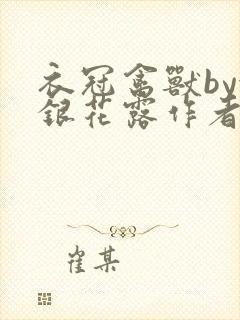 衣冠禽獸by
銀花露作者
崔某